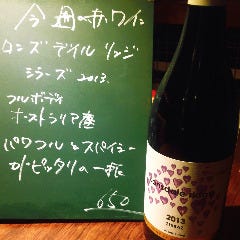 今週の赤ワイン
ロンズデイル リッジ
シラーズ 2013.
フルボディ
オーストラリア産
パワフル&スパイシー
ピッタリの一瓶
650
2013
SHIRAZ